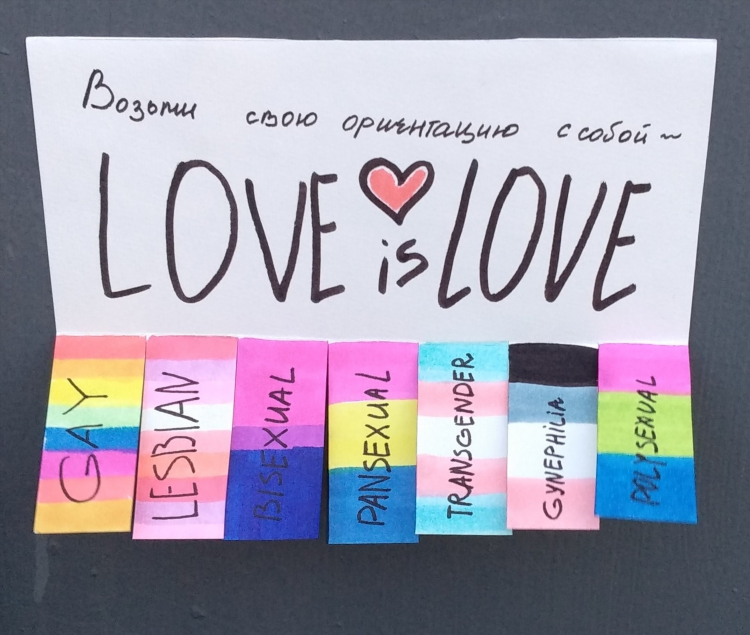 Возьми свою ориентацию с собой~
LOVE is LOVE
GAY
LESBIAN
BISEXUAL
PANSEXUAL
TRANSGENDER
GYNEPHILIA
POLYSEXUAL